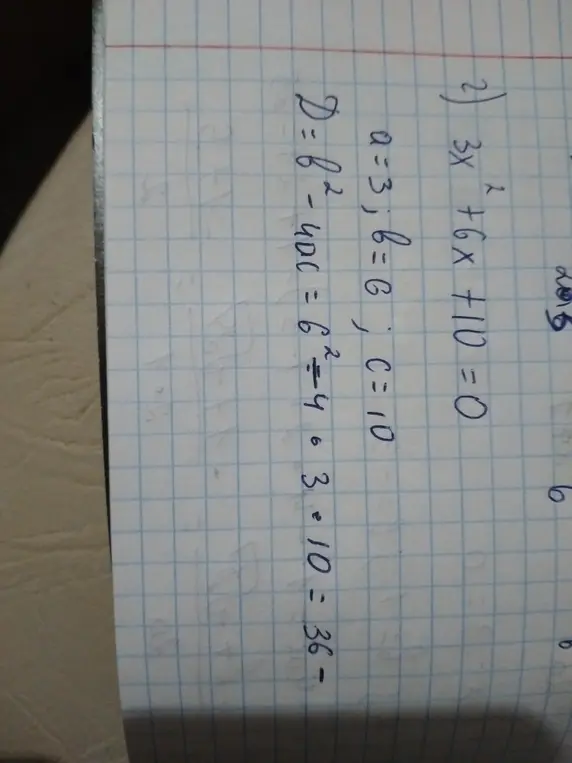 2) 3x² + 6x + 10 = 0
a = 3 ; b = 6 ; c = 10
D = b² - 4ac = 6² - 4 · 3 · 10 = 36 -